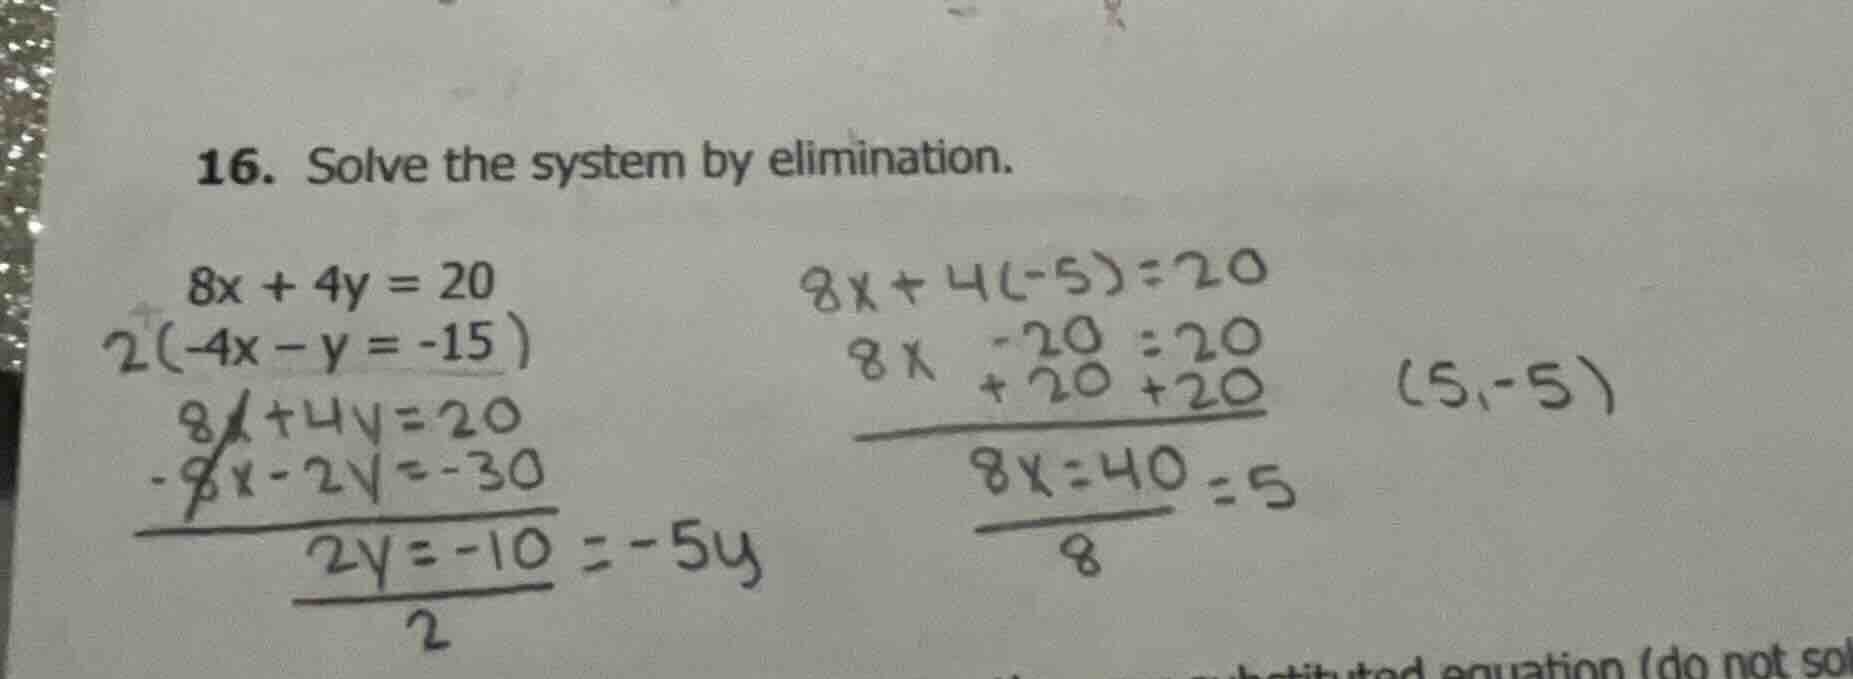 16. Solve the system by elimination.
8x + 4y = 20
2(-4x – y = -15)
8x+4y=20
-8x-2y=-30
2y=-10 =-5y
2
8x+4(-5)=20
8x -20 =20
+20 +20
8x=40 =5
8
(5,-5)
substituted equation (do not sol